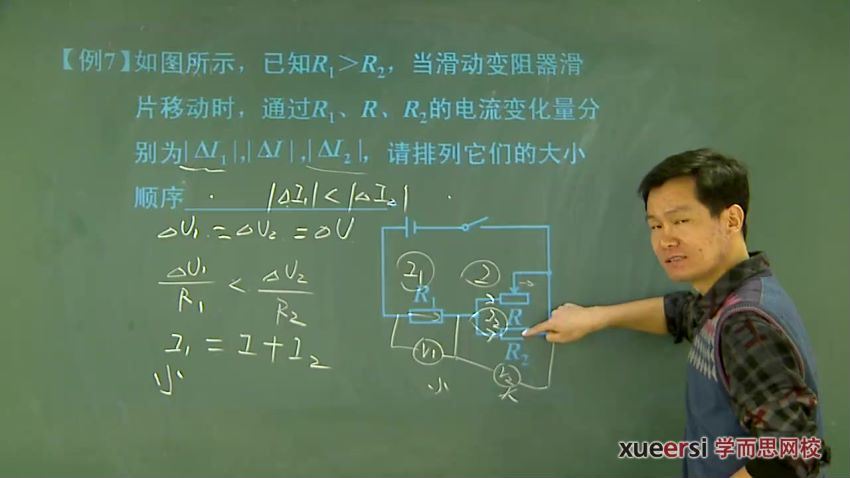 【例7】如图所示，已知R₁＞R₂，当滑动变阻器滑
片移动时，通过R₁、R、R₂的电流变化量分
别为|ΔI₁|,|ΔI|,|ΔI₂|，请排列它们的大小
顺序
|ΔI₁|<|ΔI₂|
ΔU₁=ΔU₂=ΔU
ΔU₁/R₁ < ΔU₂/R₂
I₁=I+I₂
小
I₁
I
R₁
R
I₂
R₂
V₁
V₂
小
大
xueersi 学而思网校